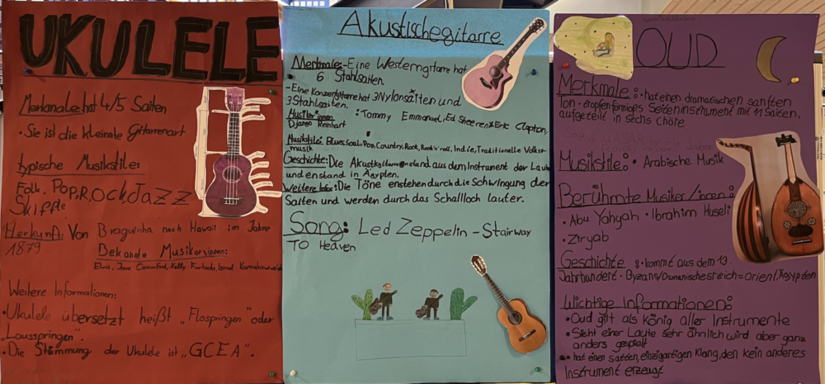 UKULELE
Merkmale: hat 4/5 Saiten
• Sie ist die kleinste Gitarrenart
typische Musikstile:
Folk, Pop, Rock, Jazz
Skiffle
Herkunft: Von Braguinha nach Hawaii im Jahre
1879
Bekannte Musiker:innen:
Elvis,
Weitere Informationen:
• Ukulele übersetzt heißt „Flospringen" oder
„Lausspringen".
• Die Stimmung der Ukulele ist „GCEA".
Akustischegitarre
Merkmale: - Eine Westerngitarre hat
6 Stahlsaiten
- Eine Konzertgitarre hat 3 Nylonsaiten und
3 Stahlsaiten.
Musiker:innen: Tommy Emmanuel, Ed Sheeren, Eric Clapton,
Django Reinhart
Musikstile: Blues, Soul, Pop, Country, Rock, Rock'n'roll, Indie, Traditionelle Volks-
musik
Geschichte: Die Akustik enstand aus dem Instrument der Laute
und enstand in Ägypten.
Weitere Infos: Die Töne enstehen durch die Schwingung der
Saiten und werden durch das Schallloch lauter.
Song: Led Zeppelin - Stairway
To Heaven
OUD
Merkmale: • hat einen dramatischen sanften
Ton • tropfenförmiges Seiteninstrument mit 11 Saiten,
aufgeteilt in sechs Chöre
Musikstile: • Arabische Musik
Berühmte Musiker/innen:
• Abu Yahyah • Ibrahim Museli
• Ziryab
Geschichte: • kommt aus dem 13.
Jahrhundert • Orient, Ägypten
Wichtige Informationen:
• Oud gilt als König aller Instrumente
• Sieht einer Laute sehr ähnlich wird aber ganz
anders gespielt
• hat einen satten, einzigartigen Klang, den kein anderes
Instrument erzeugt